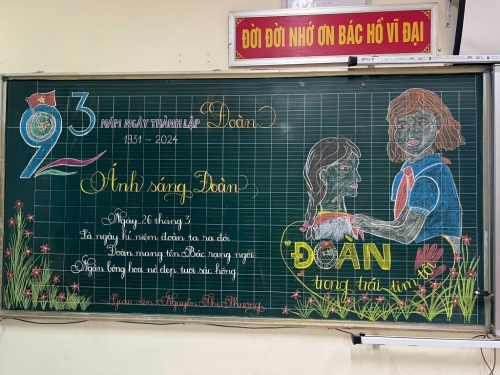 ĐỜI ĐỜI NHỚ ƠN BÁC HỒ VĨ ĐẠI
93 NĂM NGÀY THÀNH LẬP Đoàn
1931 ~ 2024
Ánh sáng Đoàn
Ngày 26 tháng 3
Là ngày kỉ niệm đoàn ta ra đời
Đoàn mang tên Bác rạng ngời
Ngàn bông hoa nở đẹp tươi sắc hồng
Giáo viên: Nguyễn Thu Phương
ĐOÀN
trong trái tim tôi